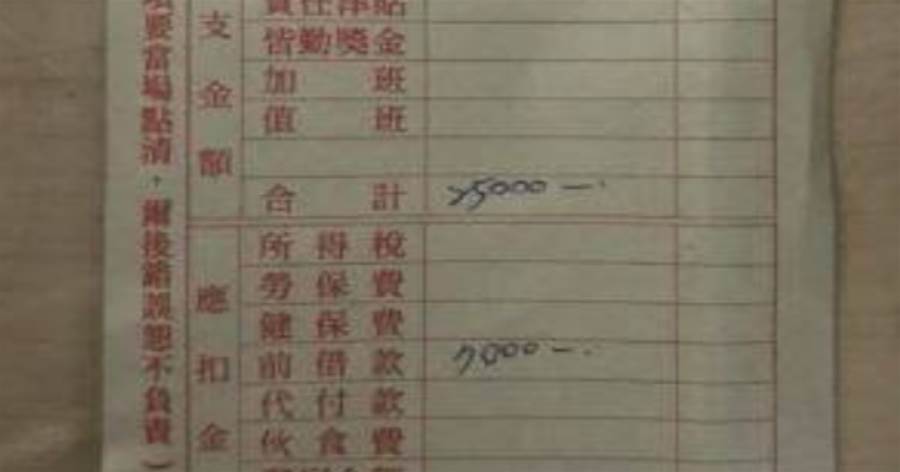 要當場點清，爾後錯誤恕不負責）
支金額
責任津貼
皆勤獎金
加班
值班
合計 25000 —.
應扣金
所得稅
勞保費
健保費
前借款 7000 —.
代付款
伙食費